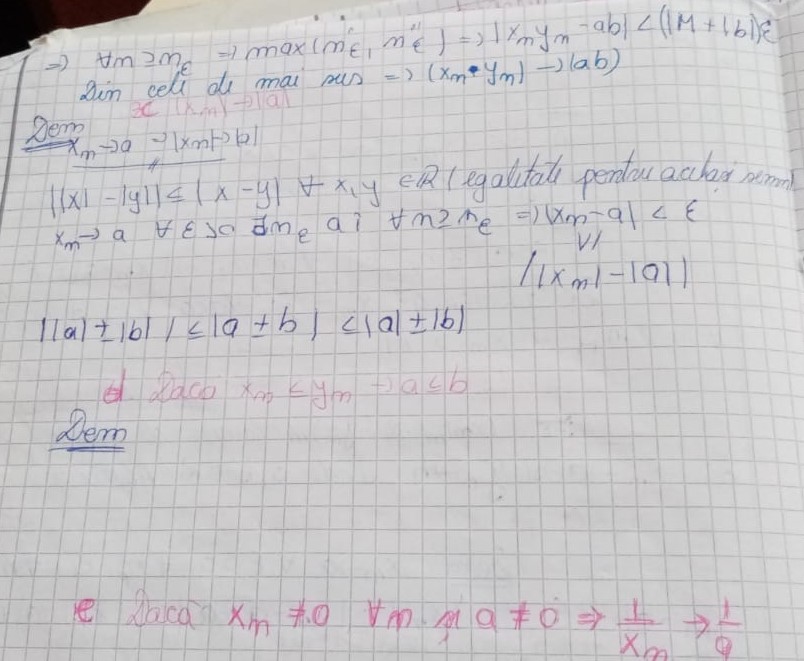 => ∀n ≥ n_ε => max(n'_ε, n''_ε) => |x_n y_n - ab| < (|M| + |b|)ε
Din cele de mai sus => (x_n • y_n) → (ab)
c |x_n| → |a|
Dem
x_n → a => |x_n| → |a|
||x| - |y|| ≤ |x - y| ∀ x, y ∈ R (egalitate pentru același semn)
x_n → a ∀ ε > 0 ∃ n_ε aî ∀ n ≥ n_ε => |x_n - a| < ε
VI
||x_n| - |a||
||a| ± |b|| ≤ |a ± b| ≤ |a| ± |b|
d Dacă x_n ≤ y_n → a ≤ b
Dem
e Dacă x_n ≠ 0 ∀n și a ≠ 0 => 1/x_n → 1/a